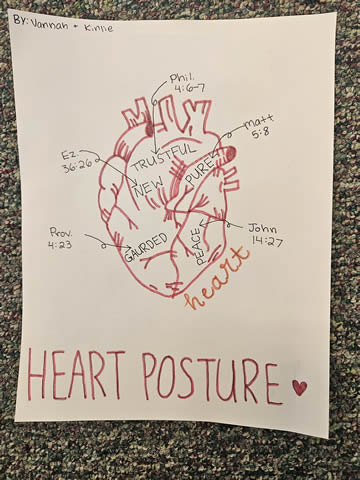 By: Vannah + Kinlie
Phil.
4:6-7
Matt
5:8
Ez.
36:26
TRUSTFUL
NEW
PURE
Prov.
4:23
GAURDED
PEACE
John
14:27
heart
HEART POSTURE